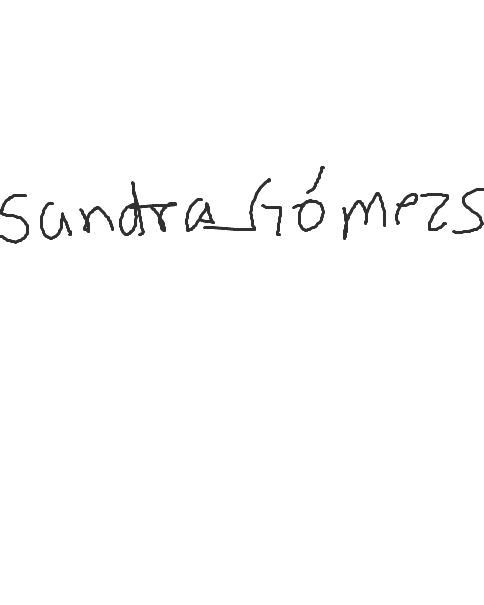 Sandra_Gómezs